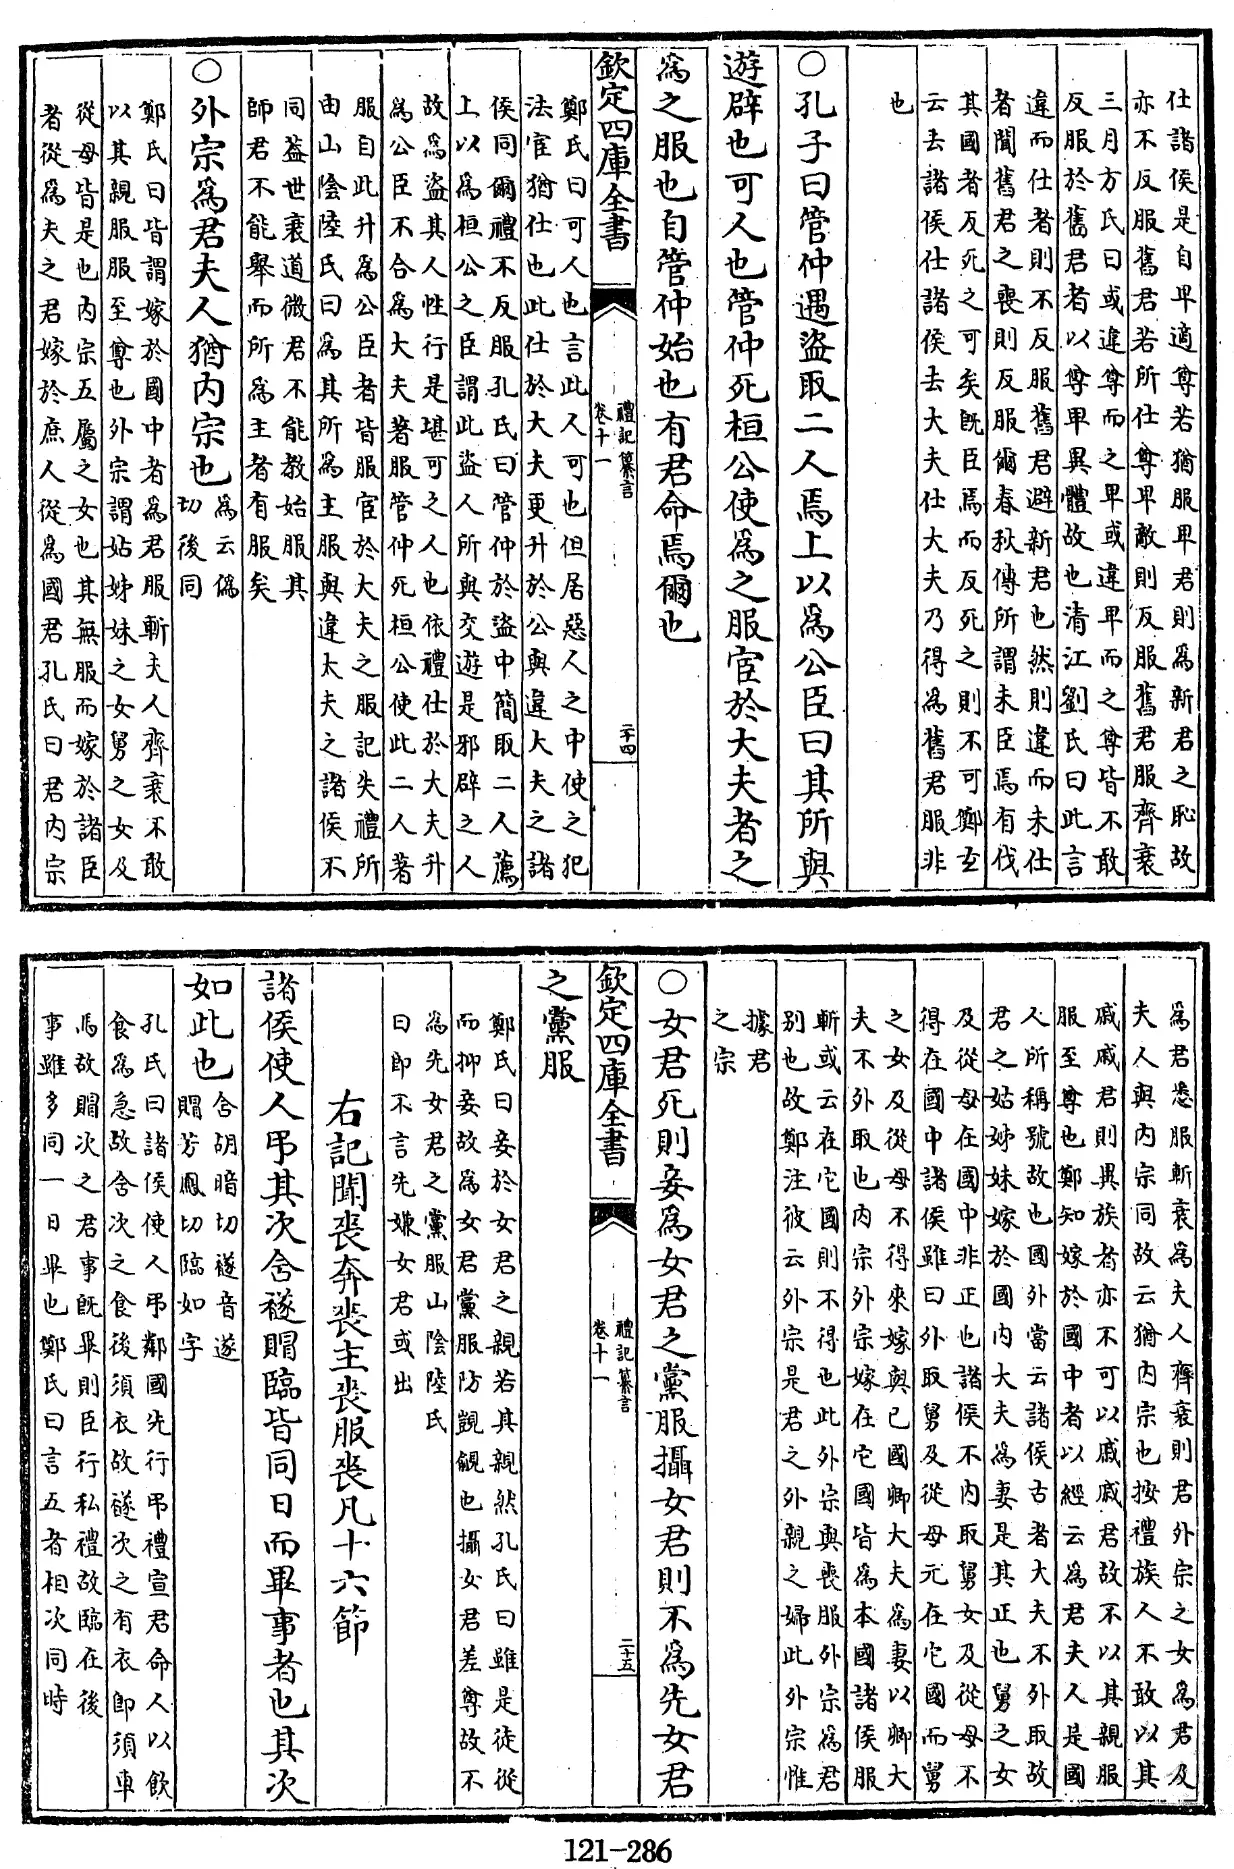 仕諸侯是自卑適尊若猶服卑君則為新君之恥故
亦不反服舊君若所仕尊卑敵則反服舊君服齊衰
三月方氏曰或違尊而之卑或違卑而之尊皆不敢
反服於舊君者以尊卑異體故也清江劉氏曰此言
違而仕者則不反服舊君避新君也然則違而未仕
者聞舊君之喪則反服爾春秋傳所謂未臣焉有伐
其國者反死之可矣既臣焉而反死之則不可鄭玄
云去諸侯仕諸侯去大夫仕大夫乃得為舊君服非
也
○孔子曰管仲遇盜取二人焉上以為公臣曰其所與
遊辟也可人也管仲死桓公使為之服宦於大夫者之
為之服也自管仲始也有君命焉爾也
欽定四庫全書
禮記纂言
卷十一
二十四
鄭氏曰可人也言此人可也但居惡人之中使之犯
法宦猶仕也此仕於大夫更升於公與違大夫之諸
侯同爾禮不反服孔氏曰管仲於盜中簡取二人薦
上以為桓公之臣謂此盜人所與交遊是邪辟之人
故為盜其人性行是堪可之人也依禮仕於大夫升
為公臣不合為大夫著服管仲死桓公使此二人著
服自此升為公臣者皆服宦於大夫之服記失禮所
由山陰陸氏曰為其所為主服與違大夫之諸侯不
同蓋世衰道微君不能教始服其
師君不能舉而所為主者有服矣
○外宗為君夫人猶内宗也
為云偽
切後同
鄭氏曰皆謂嫁於國中者為君服斬夫人齊衰不敢
以其親服服至尊也外宗謂姑姊妹之女舅之女及
從母皆是也内宗五屬之女也其無服而嫁於諸臣
者從為夫之君嫁於庶人從為國君孔氏曰君内宗
為君悉服斬衰為夫人齊衰則君外宗之女為君及
夫人與内宗同故云猶内宗也按禮族人不敢以其
戚戚君則異族者亦不可以戚戚君故不以其親服
服至尊也鄭知嫁於國中者以經云為君夫人是國
人所稱號故也國外當云諸侯古者大夫不外取故
君之姑姊妹嫁於國内大夫為妻是其正也舅之女
及從母在國中非正也諸侯不内取舅女及從母不
得在國中諸侯雖曰外取舅及從母元在它國而舅
之女及從母不得來嫁與已國卿大夫為妻以卿大
夫不外取也内宗外宗嫁在它國皆為本國諸侯服
斬或云在它國則不得也此外宗與喪服外宗為君
别也故鄭注彼云外宗是君之外親之婦此外宗惟
據君
之宗
○女君死則妾為女君之黨服攝女君則不為先女君
欽定四庫全書
禮記纂言
卷十一
二十五
之黨服
鄭氏曰妾於女君之親若其親然孔氏曰雖是徒從
而抑妾故為女君黨服防覬覦也攝女君差尊故不
為先女君之黨服山陰陸氏
曰即不言先嫌女君或出
右記聞喪奔喪主喪服喪凡十六節
諸侯使人弔其次含襚賵臨皆同日而畢事者也其次
如此也
含胡暗切襚音遂
賵芳鳳切臨如字
孔氏曰諸侯使人弔鄰國先行弔禮宣君命人以飲
食為急故含次之食後須衣故襚次之有衣即須車
馬故賵次之君事既畢則臣行私禮故臨在後
事雖多同一日畢也鄭氏曰言五者相次同時
121-286